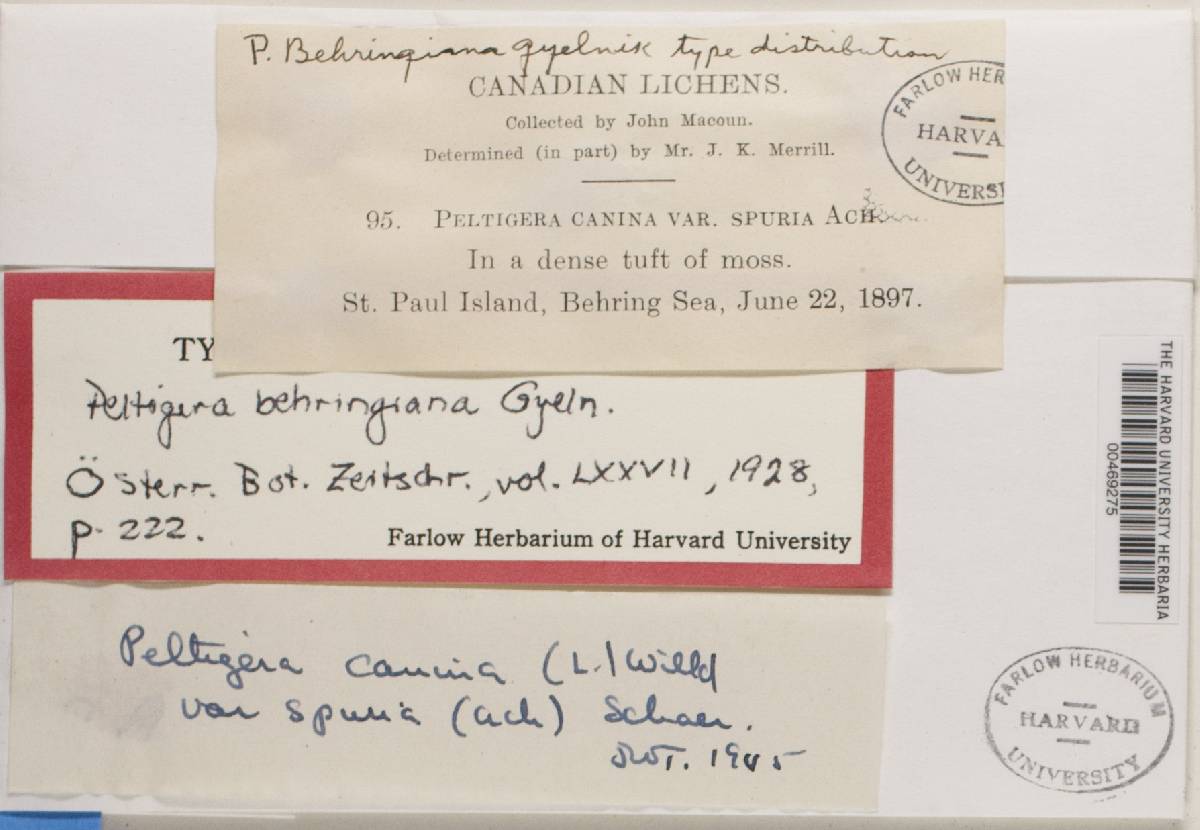 P. Behringiana gyelnik type distribution
CANADIAN LICHENS.
Collected by John Macoun.
Determined (in part) by Mr. J. K. Merrill.
FARLOW HER
HARVA
UNIVERSI
95. PELTIGERA CANINA VAR. SPURIA ACH.
In a dense tuft of moss.
St. Paul Island, Behring Sea, June 22, 1897.
TY
Peltigera behringiana Gyeln.
Österr. Bot. Zeitschr., vol. LXXVII, 1928,
p. 222.
Farlow Herbarium of Harvard University
THE HARVARD UNIVERSITY HERBARIA
00469275
Peltigera canina (L.) Willd
var spuria (Ach) Schaer.
1945
FARLOW HERBARIUM
HARVARD
UNIVERSITY